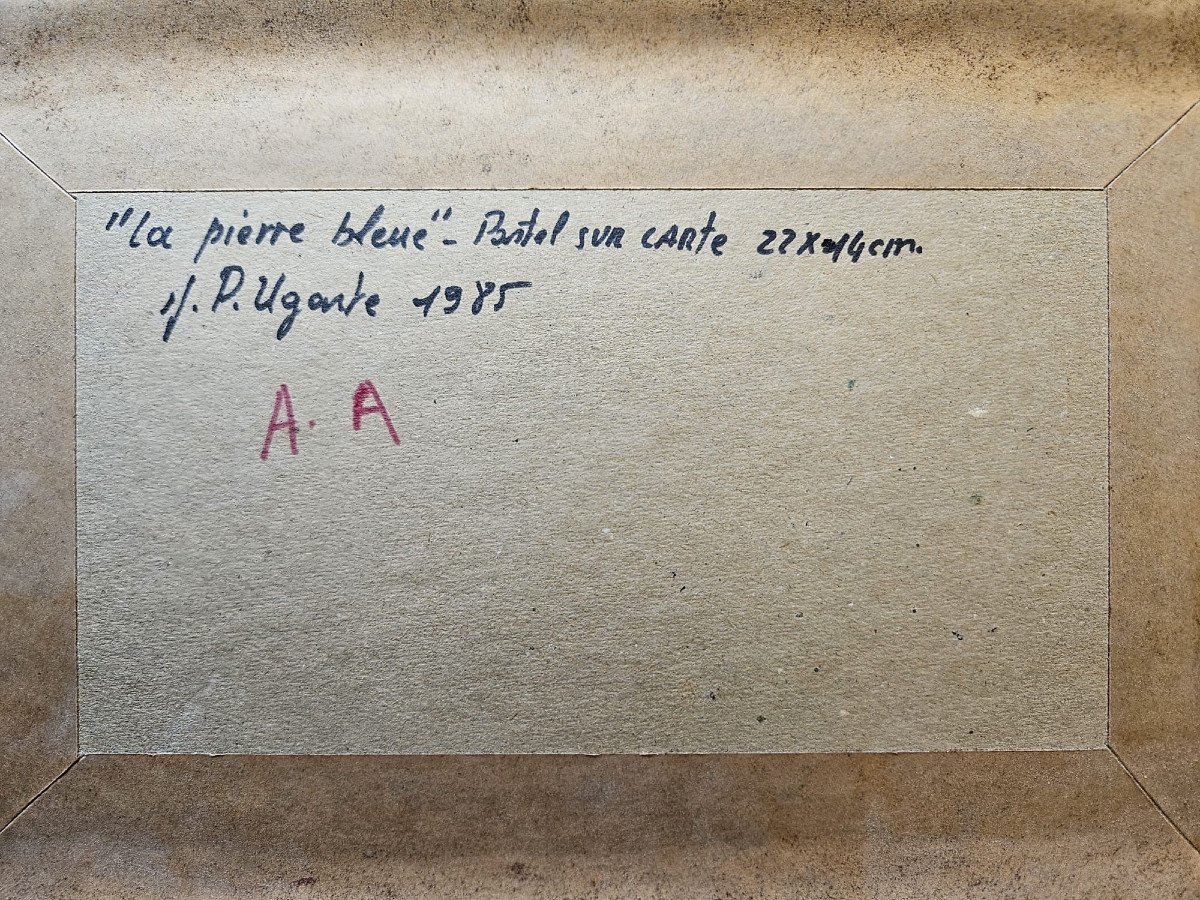 "La pierre bleue" - Pastel sur carte 22x14cm.
sf. P. Ugarte 1985
A. A